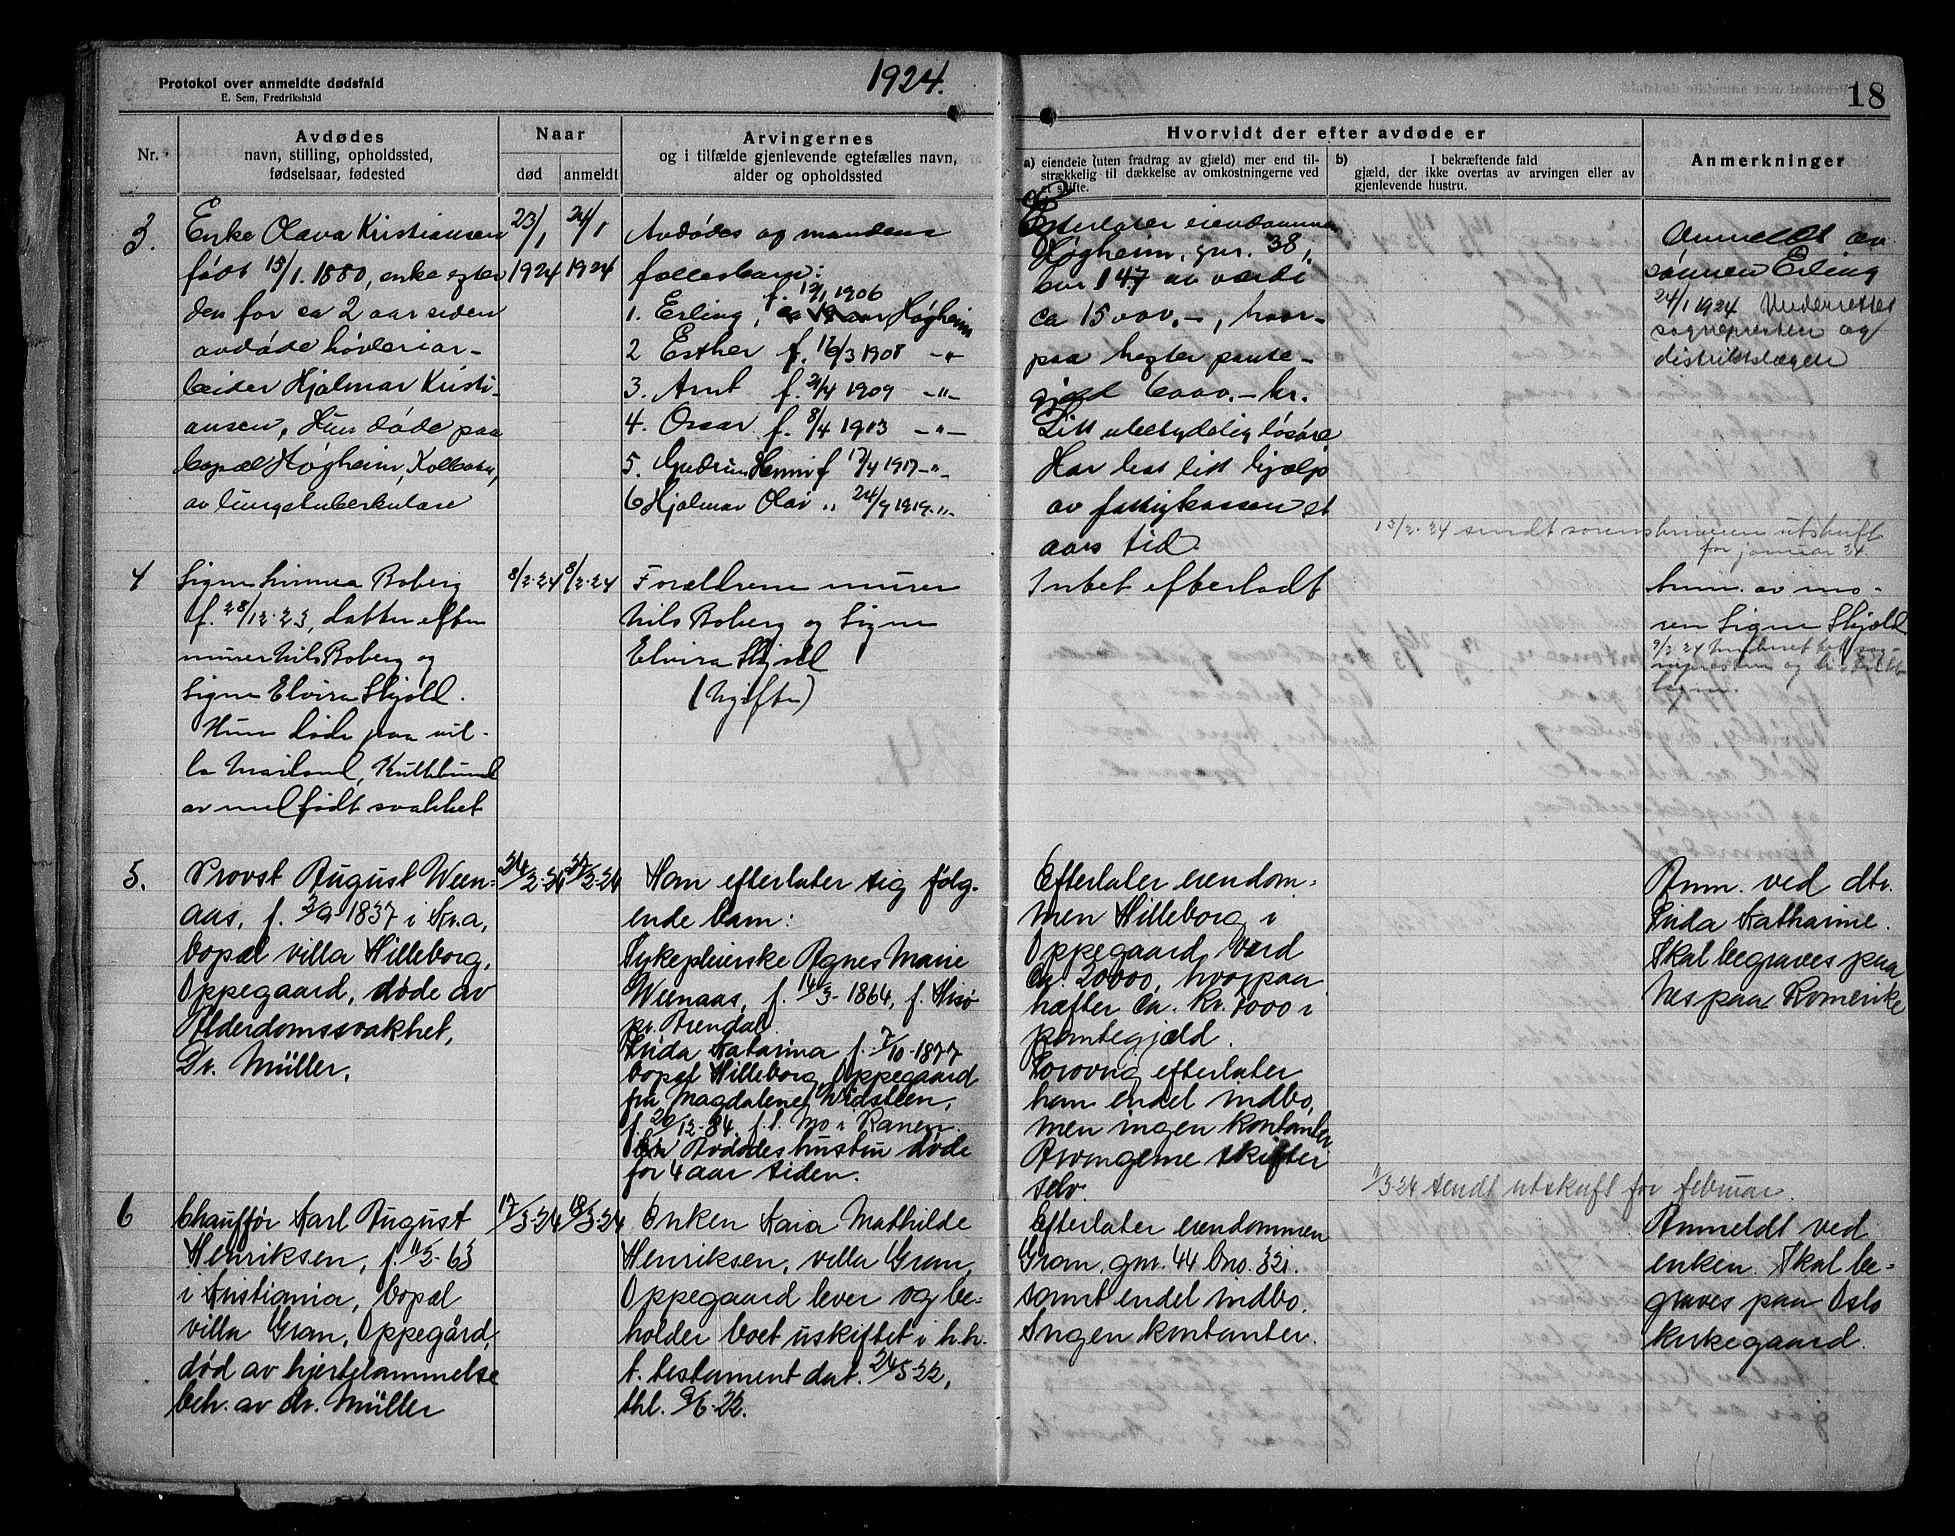 Protokol over anmeldte dødsfald
E. Sem, Fredrikshald
1924.
18
Nr.
Avdødes
navn, stilling, opholdssted,
fødselsaar, fødested
Naar
død
anmeldt
Arvingernes
og i tilfælde gjenlevende egtefælles navn,
alder og opholdssted
Hvorvidt der efter avdøde er
a) eiendele (uten fradrag av gjæld) mer end til-
strækkelig til dækkelse av omkostningerne ved
et skifte.
b) I bekræftende fald
gjæld, der ikke overtas av arvingen eller av
gjenlevende hustru.
Anmerkninger
3.
Enke Olava Kristiansen
født 15/1. 1880, enke egter
den for ca 2 aar siden
avdøde høvleriar-
beider Hjalmar Kristi-
ansen, Hun døde paa
bopæl Høgheim, Kolbotn,
av lungetuberkulose
23/1
1924
24/1
1924
Avdødes og mandens
fællesbarn:
f. 12/1 1906
1. Erling, Høgheim
2 Esther f. 16/3 1908 -"-
3. Arnt f. 21/4 1909 -"-
4. Oscar f. 8/4 1913 -"-
5. Gudrun Henni f 17/4 1917 -"-
6 Hjalmar Olav " 24/9 1919 -"-
Efterlater eiendommen
Høgheim, gnr. 38,
bnr 147 av værdi
ca 15000.-, hvor-
paa hefter pante-
gjæld 6000.- kr.
Litt ubetydelig løsøre
Har hat litt hjælp
av fattigkassen et
aars tid.
Anmeldt av
sønnen Erling
24/1 1924 Underrettet
sognepresten og
distriktslægen
13/2.24 sendt sorenskriveren utskrift
for januar 24
4
Signe Linnea Boberg
f. 28/12.23, datter efter
murer Nils Boberg og
Signe Elvira Skjold.
Hun døde paa vil-
la Mailand,
av medfødt svakhet
8/2.24
8/2.24
Forældrene murer
Nils Boberg og Signe
Elvira Skjold
(Ugifte)
Intet efterladt
Anm. av mo-
ren Signe Skjold
9/2 24 Underrettet sog-
nepresten og distrikts-
lægen.
5.
Provst August Ween-
aas, f. 3/9 1837 i Kr.a,
bopæl villa Hilleborg,
Oppegaard, døde av
Alderdomssvakhet,
Dr. Müller.
Han efterlater sig følg-
ende barn:
Sykepleierske Agnes Marie
Weenaas, f. 14/3-1864, f. Hisø
pr. Arendal.
Frida Katarina f. 7/10-1877
bopæl Hilleborg, Oppegaard
fru Magdalene Widsteen,
f. 20/12-84, f. i Mo i Ranen.
Avdødes hustru døde
for 4 aar siden.
Efterlater eiendom-
men Hilleborg i
Oppegaard, Værd
Ca. 20000, hvorpaa
hæfter Ca. Kr. 7000 i
pantegjæld.
Forøvrig efterlater
han endel indbo,
men ingen kontanter.
Arvingerne skifter
selv.
Anm. ved dtr.
Frida Katharine.
Skal begraves paa
Nes paa Romerike
1/3 24 sendt utskrift for februar.
6
Chauffør Karl August
Henriksen, f. 11/2-63
i Kristiania, bopæl
villa Gran, Oppegård,
død av hjertelammelse
beh. av dr. Müller
17/3-24
18/3-24
Enken Kaia Mathilde
Henriksen, villa Gran,
Oppegaard lever og be-
holder boet uskiftet i h.h.
t. testament dat. 24/5-22,
thl. 9/6-22.
Efterlater eiendommen
Gran, gnr. 44 bno. 321.
samt endel indbo.
Ingen kontanter.
Anmeldt ved
enken. Skal be-
graves paa Oslo
kirkegaard.